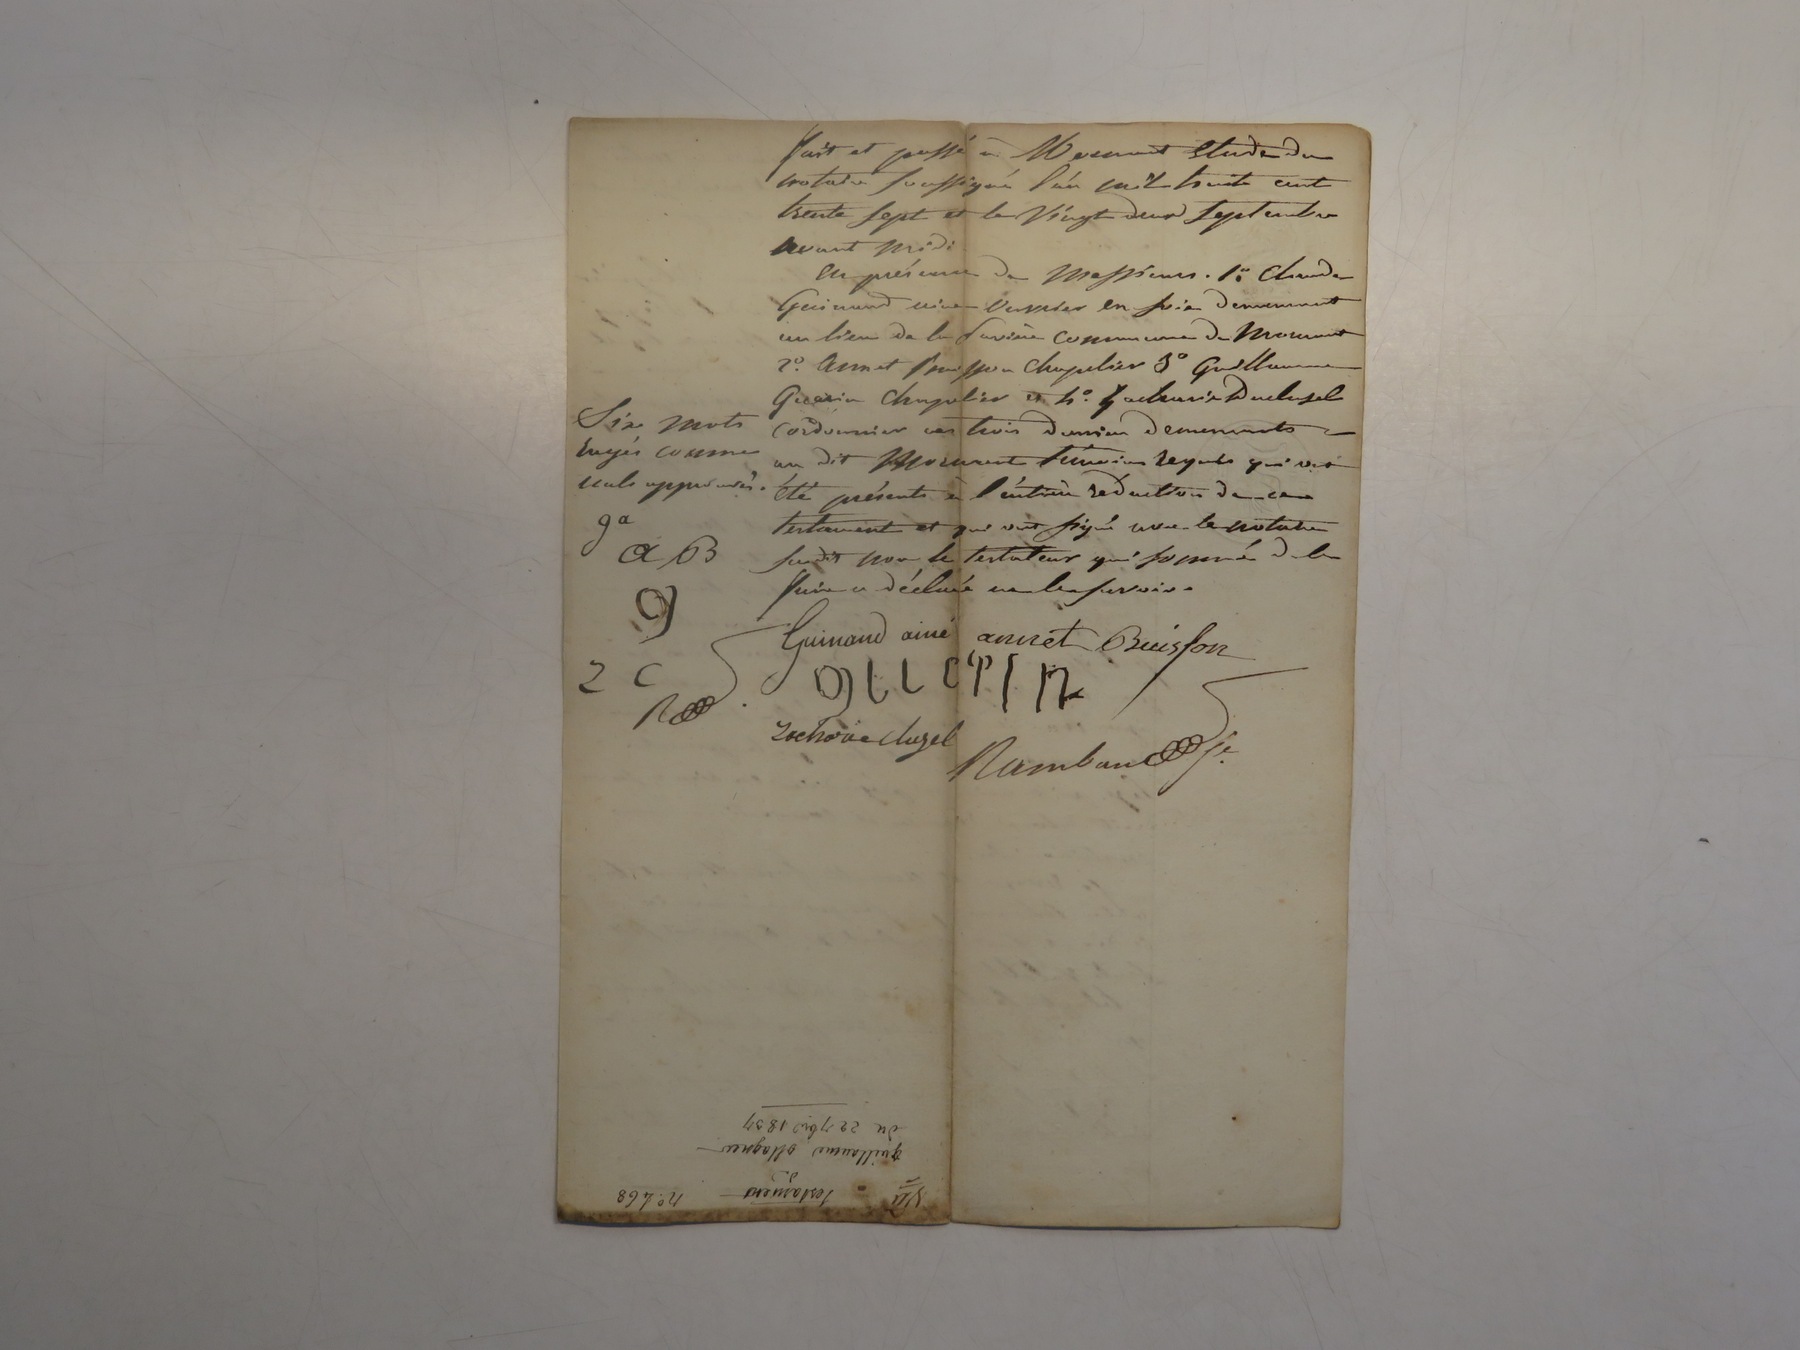 fait et passé à Mornant Etude du
notaire soussigné l'an mil huit cent
trente sept et le vingt deux septembre
avant midi
En présence de Messieurs. 1º. Claude
Guinand ainé ouvrier en soie demeurant
au lieu de la commune de Mornant
2º. Annet Buisson chapelier 3º Guillaume
Guerin chapelier et 4º. Zacharie Duclusel
cordonnier ces trois derniers demeurants
au dit Mornant témoins requis qui ont
été présents à l'entière rédaction de ce
testament et qui ont signé avec le notaire
susdit non le testateur qui sommé de le
faire a déclaré ne le savoir.
Six mots
rayés comme
nuls approuvés.
ga
a B
g
Z C
R
Guinand ainé annet Buisson
guerin
zacharie clusel
Rambaud
Testament nº. 468
guillaume
du 22 7bre 1837